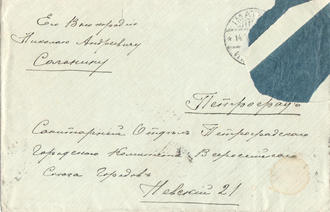 Его Высокородію
Николаю Андреевичу
Салонину
Петроградъ
Санитарный Отдѣлъ Петроградского
Городского Комитета Всероссійского
Союза Городовъ
Невский 21